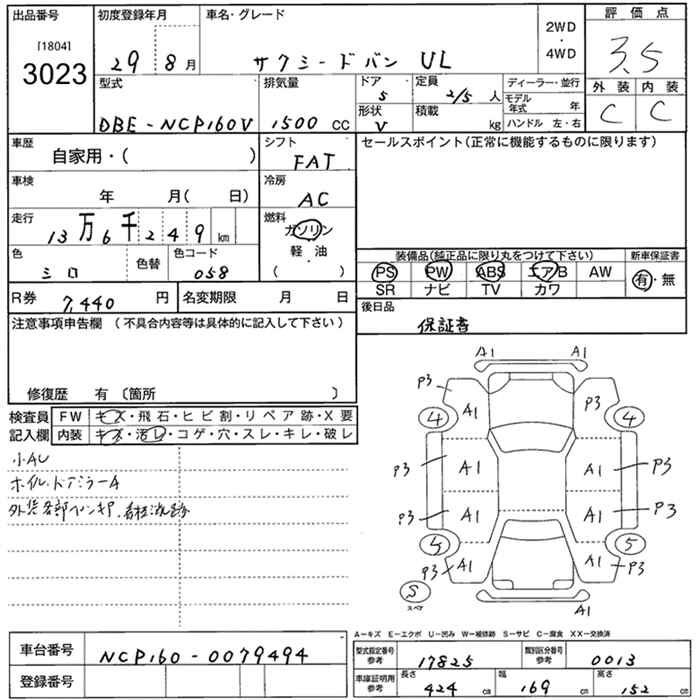 出品番号
[1804]
3023
初度登録年月
29 8 月
車名・グレード
サクシードバン UL
2WD
・
4WD
評価点
3.5
外装 内装
C C
型式
DBE-NCP160V
排気量
1500 CC
ドア
5
形状
V
定員
2/5 人
積載
kg
ディーラー・並行
モデル年式 年
ハンドル 左・右
車歴
自家用・( )
シフト
FAT
セールスポイント(正常に機能するものに限ります)
車検
年 月( 日)
冷房
AC
走行
13万6千249km
燃料
ガソリン
軽油
・
( )
色
シロ
色替
色コード
058
装備品(純正品に限り丸をつけて下さい)
PS PW ABS エアB AW
SR ナビ TV カワ
新車保証書
有・無
R券 7,440 円
名変期限 月 日
後日品
保証書
注意事項申告欄 (不具合内容等は具体的に記入して下さい)
修復歴 有 〔箇所 〕
検査員記入欄
FW キズ・飛石・ヒビ割・リペア跡・X要
内装 キズ・汚レ・コゲ・穴・スレ・キレ・破レ
小AU
ホイル.ドアミラーA
外装各部ペンキ
A1 A1
P3 A1 P3
4 4
P3 A1 A1 P3
P3 A1 A1 P3
5 5
P3 A1 A1 P3
S
スペア
A1
A-キズ E-エクボ U-凹み W-補修跡 S-サビ C-腐食 XX-交換済
車台番号
NCP160-0079494
登録番号
型式指定番号 参考
17825
類別区分番号 参考
0013
車庫証明用 参考
長さ 424 cm
幅 169 cm
高さ 152 cm